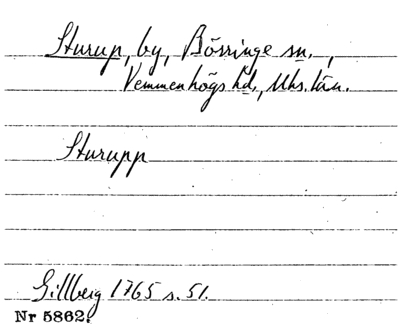 Sturup, by, Börringe sn.,
Vemmenhögs hd., Mhs. län.
Sturupp
Gillberg 1765 s. 51.
Nr 5862.